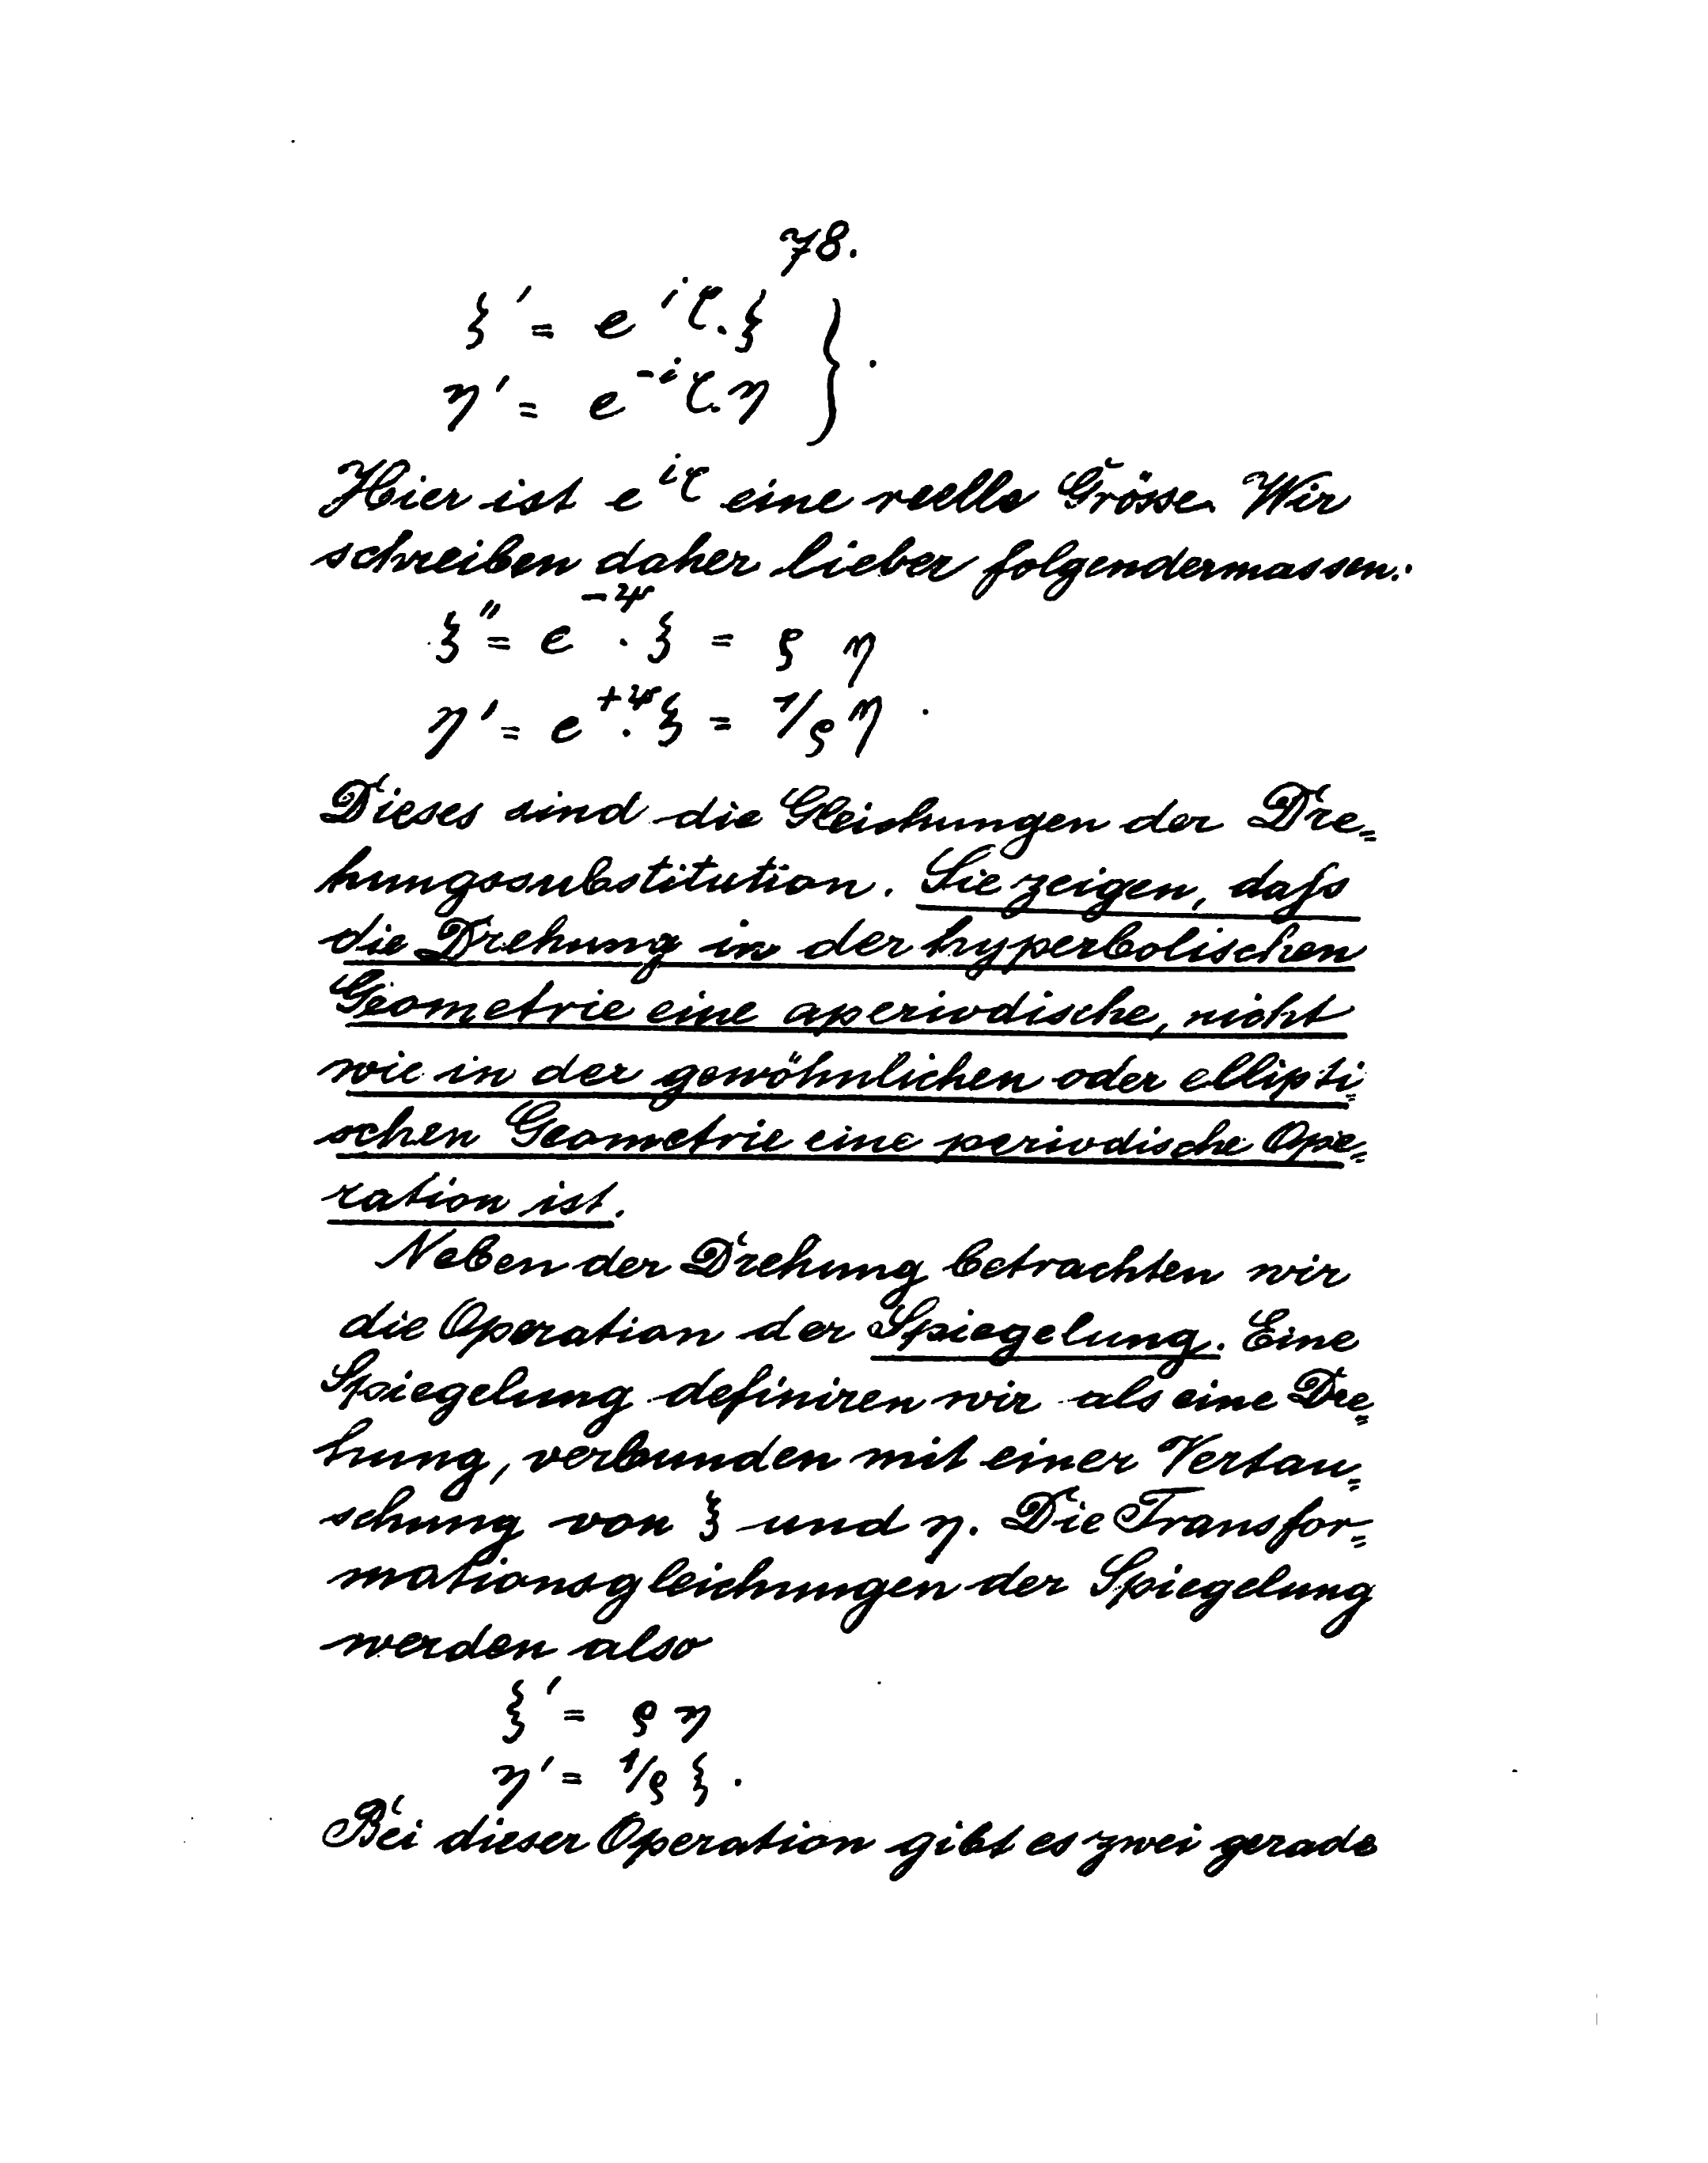 78.
ξ' = e^{iτ}.ξ
η' = e^{-iτ}.η }.
Hier ist e^{iτ} eine reelle Grösse. Wir
schreiben daher lieber folgendermassen:
ξ'' = e^{-ψ}.ξ = ρ η
η' = e^{+ψ}.ξ = 1/ρ η .
Dieses sind die Gleichungen der Dre=
hungssubstitution. Sie zeigen, daſs
die Drehung in der hyperbolischen
Geometrie eine aperiodische, nicht
wie in der gewöhnlichen oder ellipti=
schen Geometrie eine periodische Ope=
ration ist.
Neben der Drehung betrachten wir
die Operation der Spiegelung. Eine
Spiegelung definiren wir als eine Dre=
hung, verbunden mit einer Vertau=
schung von ξ und η. Die Transfor=
mationsgleichungen der Spiegelung
werden also
ξ' = ρ η
η' = 1/ρ ξ .
Bei dieser Operation gibt es zwei gerade